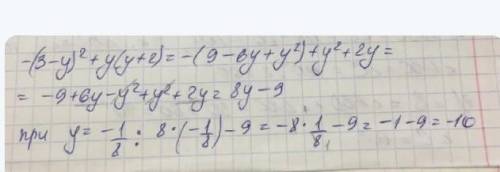 -(3-y)²+y(y+2)=-(9-6y+y²)+y²+2y=
= -9+6y-y²+y²+2y=8y-9
при y=-1/8: 8·(-1/8)-9=-8·1/8₁-9=-1-9=-10